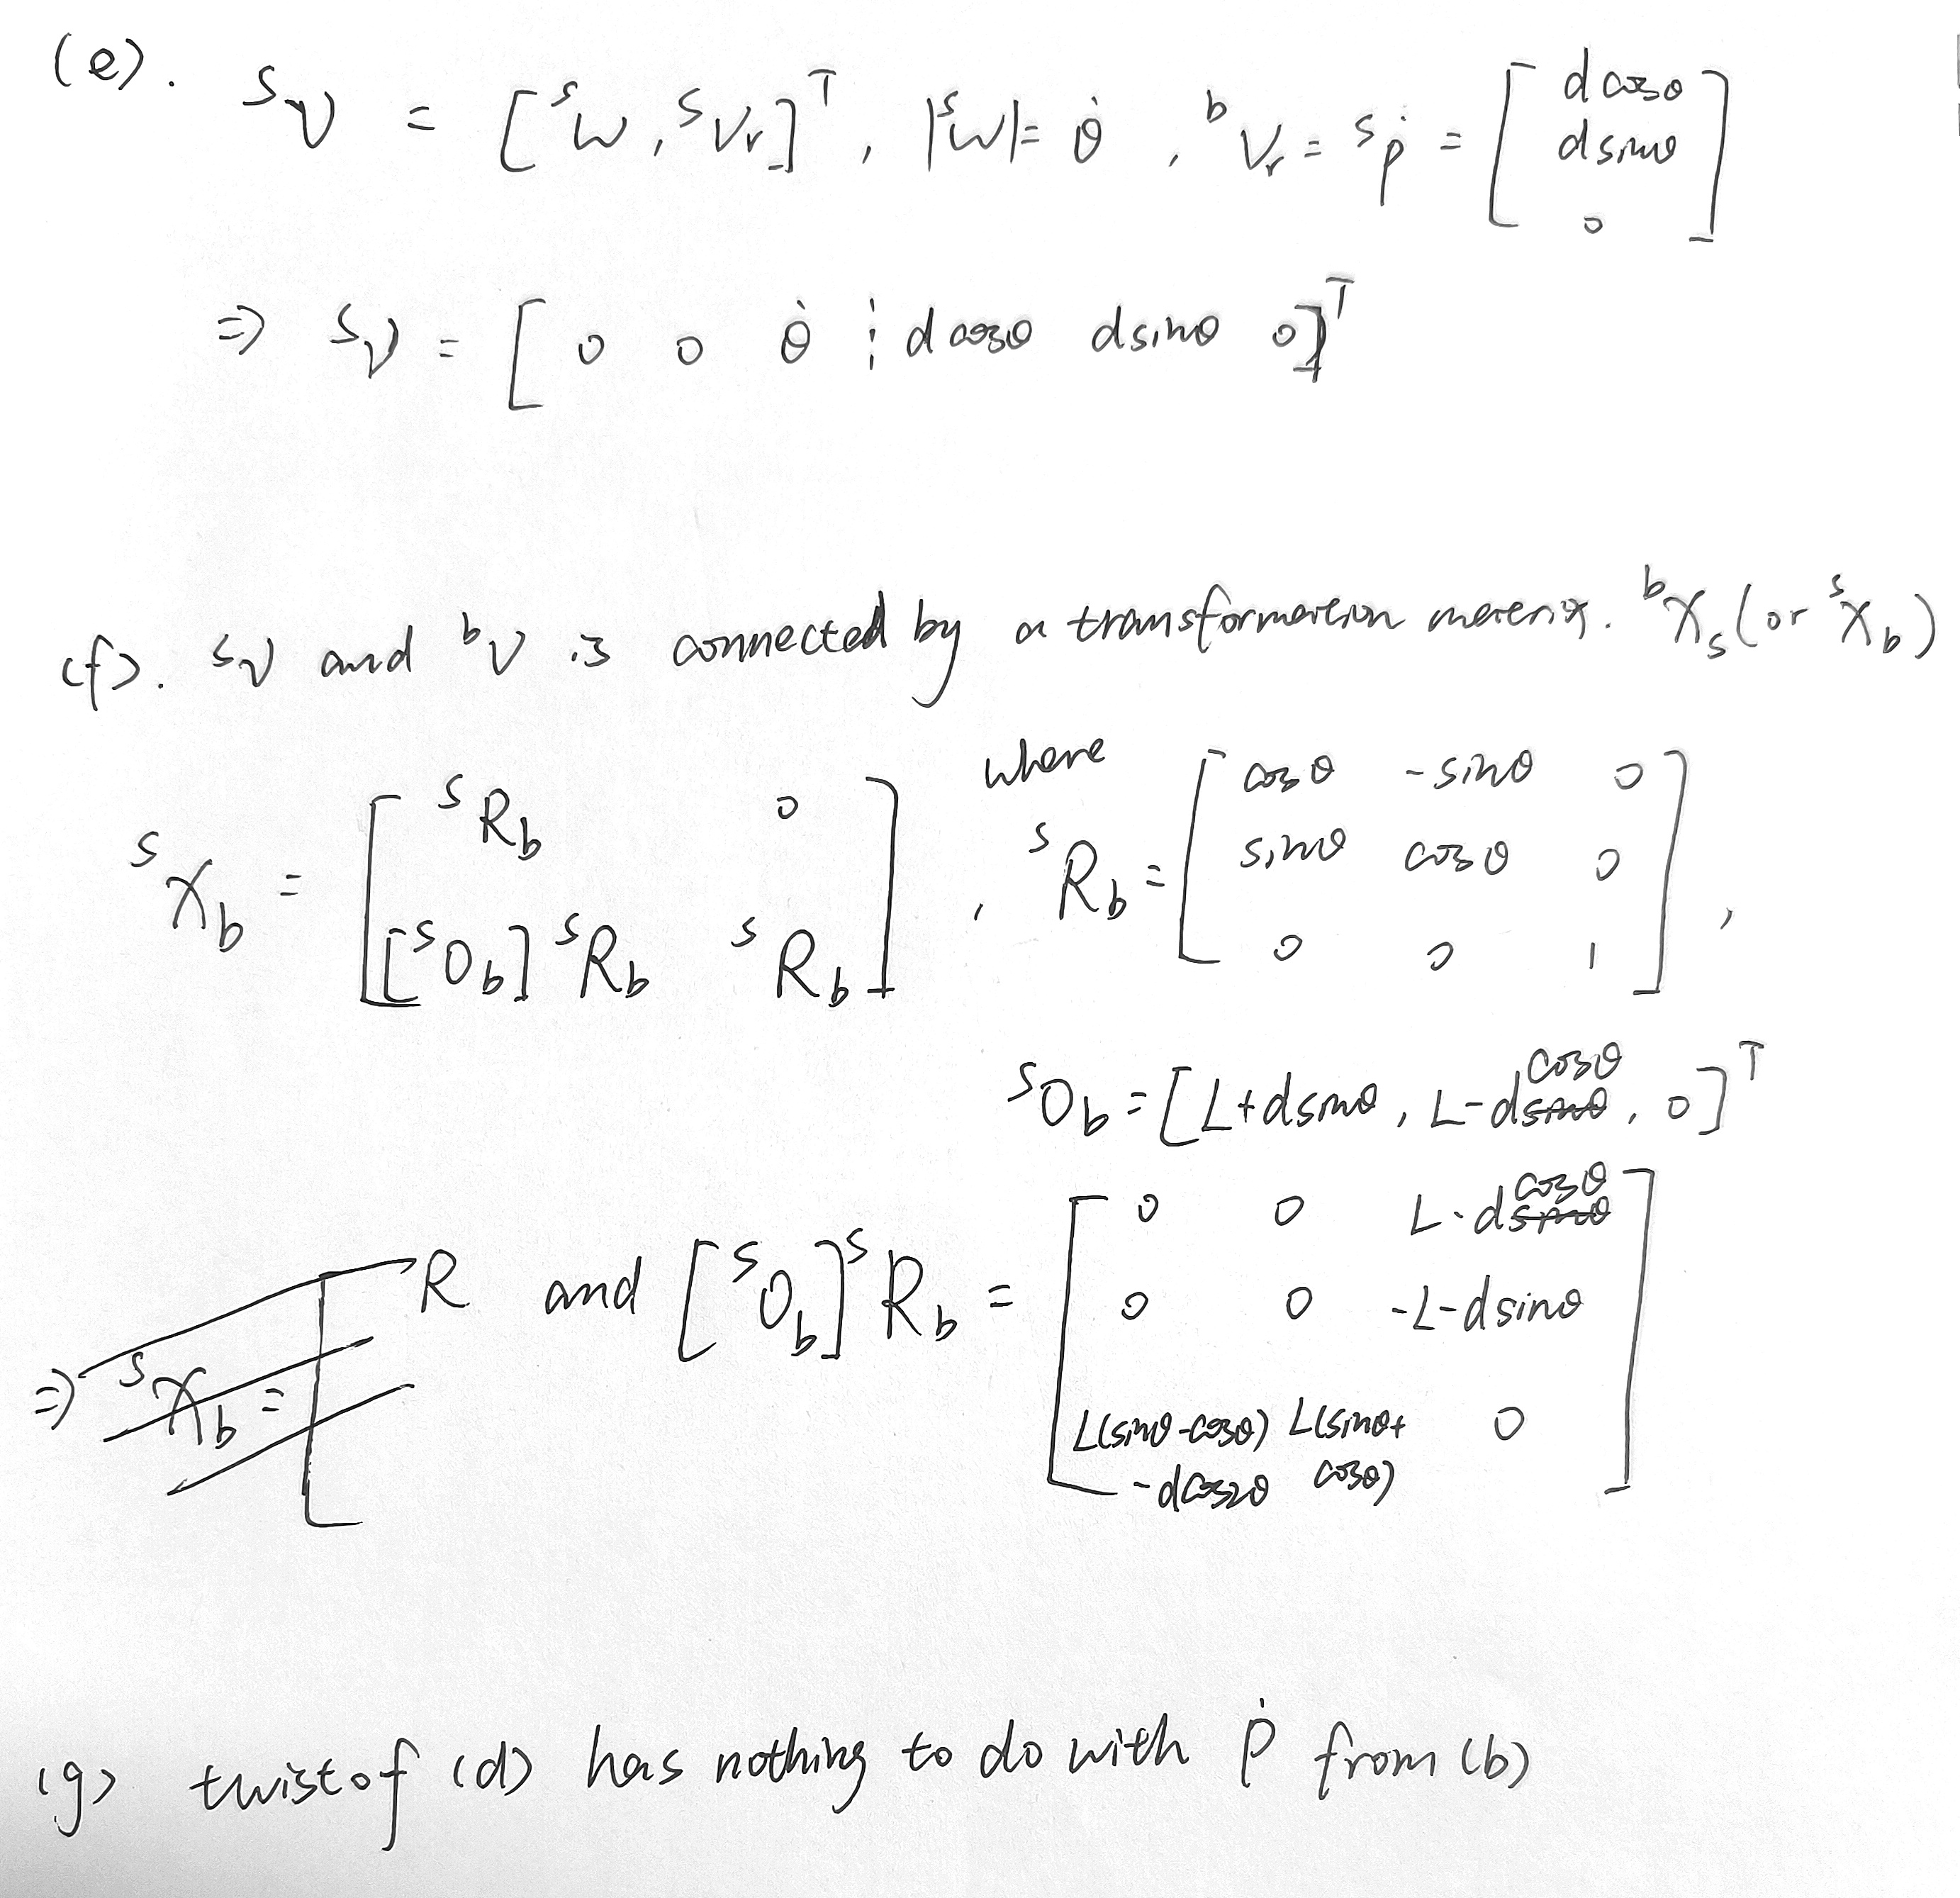 (e). ˢV = [ˢW, ˢVᵣ]ᵀ, |ˢW| = θ̇, ᵇVᵣ = ˢṗ = [d cosθ; d sinθ; 0]
⇒ ˢV = [0 0 θ̇ ⋮ d cosθ d sinθ 0]ᵀ
(f). ˢV and ᵇV is connected by a transformation matrix. ᵇXₛ (or ˢX_b)
ˢX_b = [ˢR_b 0; [ˢO_b] ˢR_b ˢR_b], where ˢR_b = [cosθ -sinθ 0; sinθ cosθ 0; 0 0 1],
ˢO_b = [L+d sinθ, L-d cosθ, 0]ᵀ
⇒ ˢX_b = [ R and [ˢO_b] ˢR_b = [0 0 L-d cosθ; 0 0 -L-d sinθ; L(sinθ-cosθ) -d cos2θ L(sinθ+cosθ) 0]
(g) twist of (d) has nothing to do with ṗ from (b)